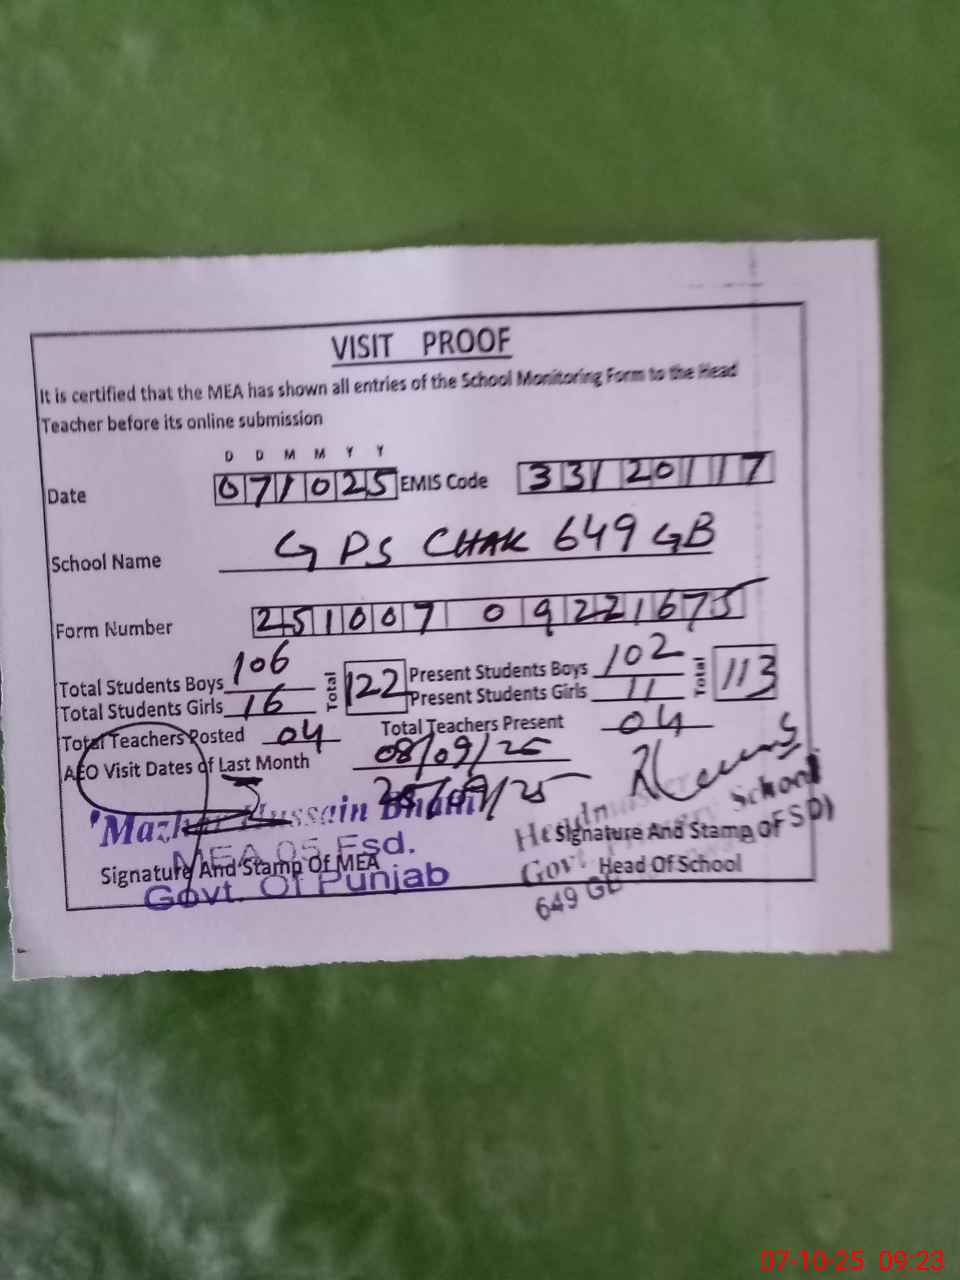 VISIT PROOF
It is certified that the MEA has shown all entries of the School Monitoring Form to the Head
Teacher before its online submission
D D M M Y Y
Date 071025 EMIS Code 33120117
School Name GPS CHAK 649 GB
Form Number 251007 09221675
Total Students Boys 106 Total 122 Present Students Boys 102 Total 113
Total Students Girls 16 Present Students Girls 11
Total Teachers Posted 04 Total Teachers Present 04
AEO Visit Dates of Last Month 08/09/25
/09/25
Mazhar Hussain
MEA 05 Fsd.
Signature And Stamp Of MEA
Govt. Of Punjab
Signature And Stamp Of
Head Of School
Govt School
649 GB FSD)
07-10-25 09:23